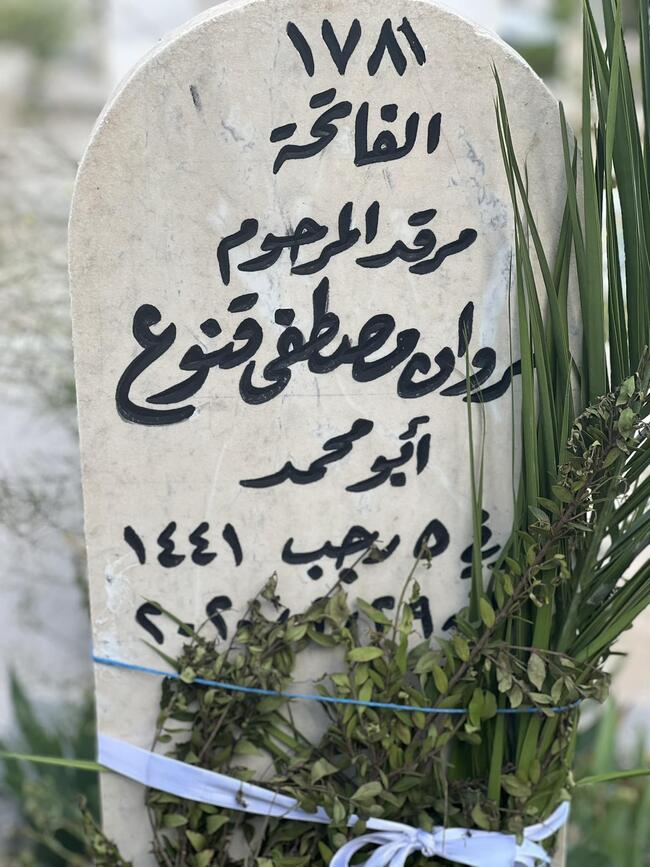 ١٧٨١
الفاتحة
مرقد المرحوم
مروان مصطفى قنوع
أبو محمد
في ٥ رجب ١٤٤١
٢٩